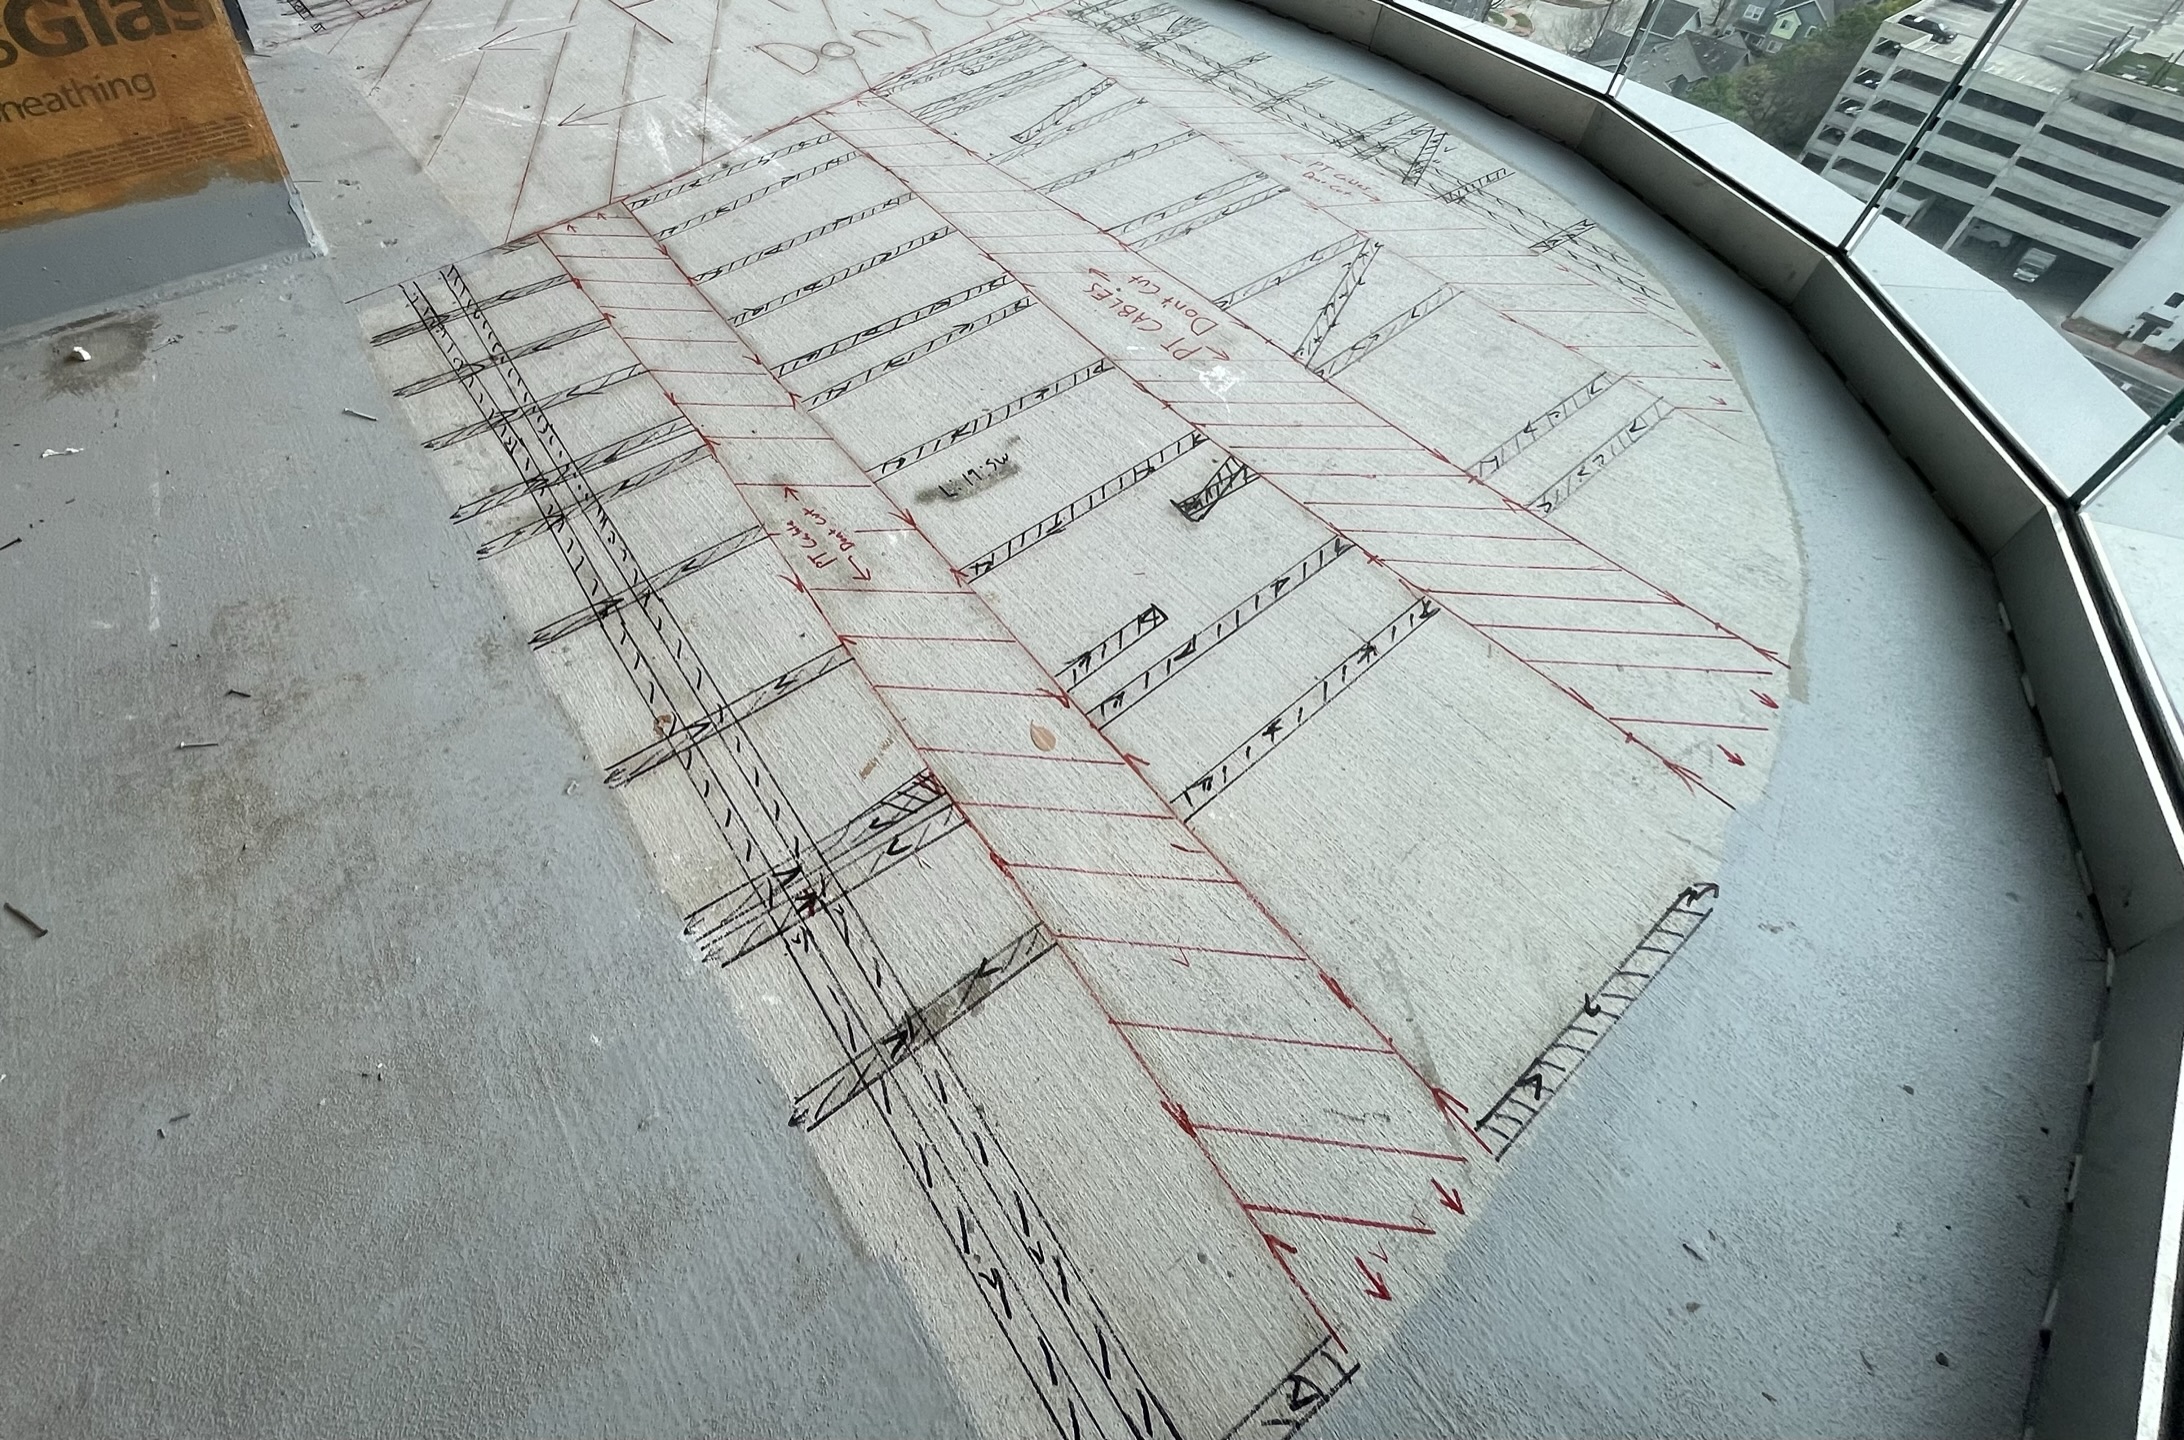 Glas
heathing
Don't
PT Cables
Don't Cut
PT CABLES
Don't Cut
L.19.SW
PT Cable
Dont cut